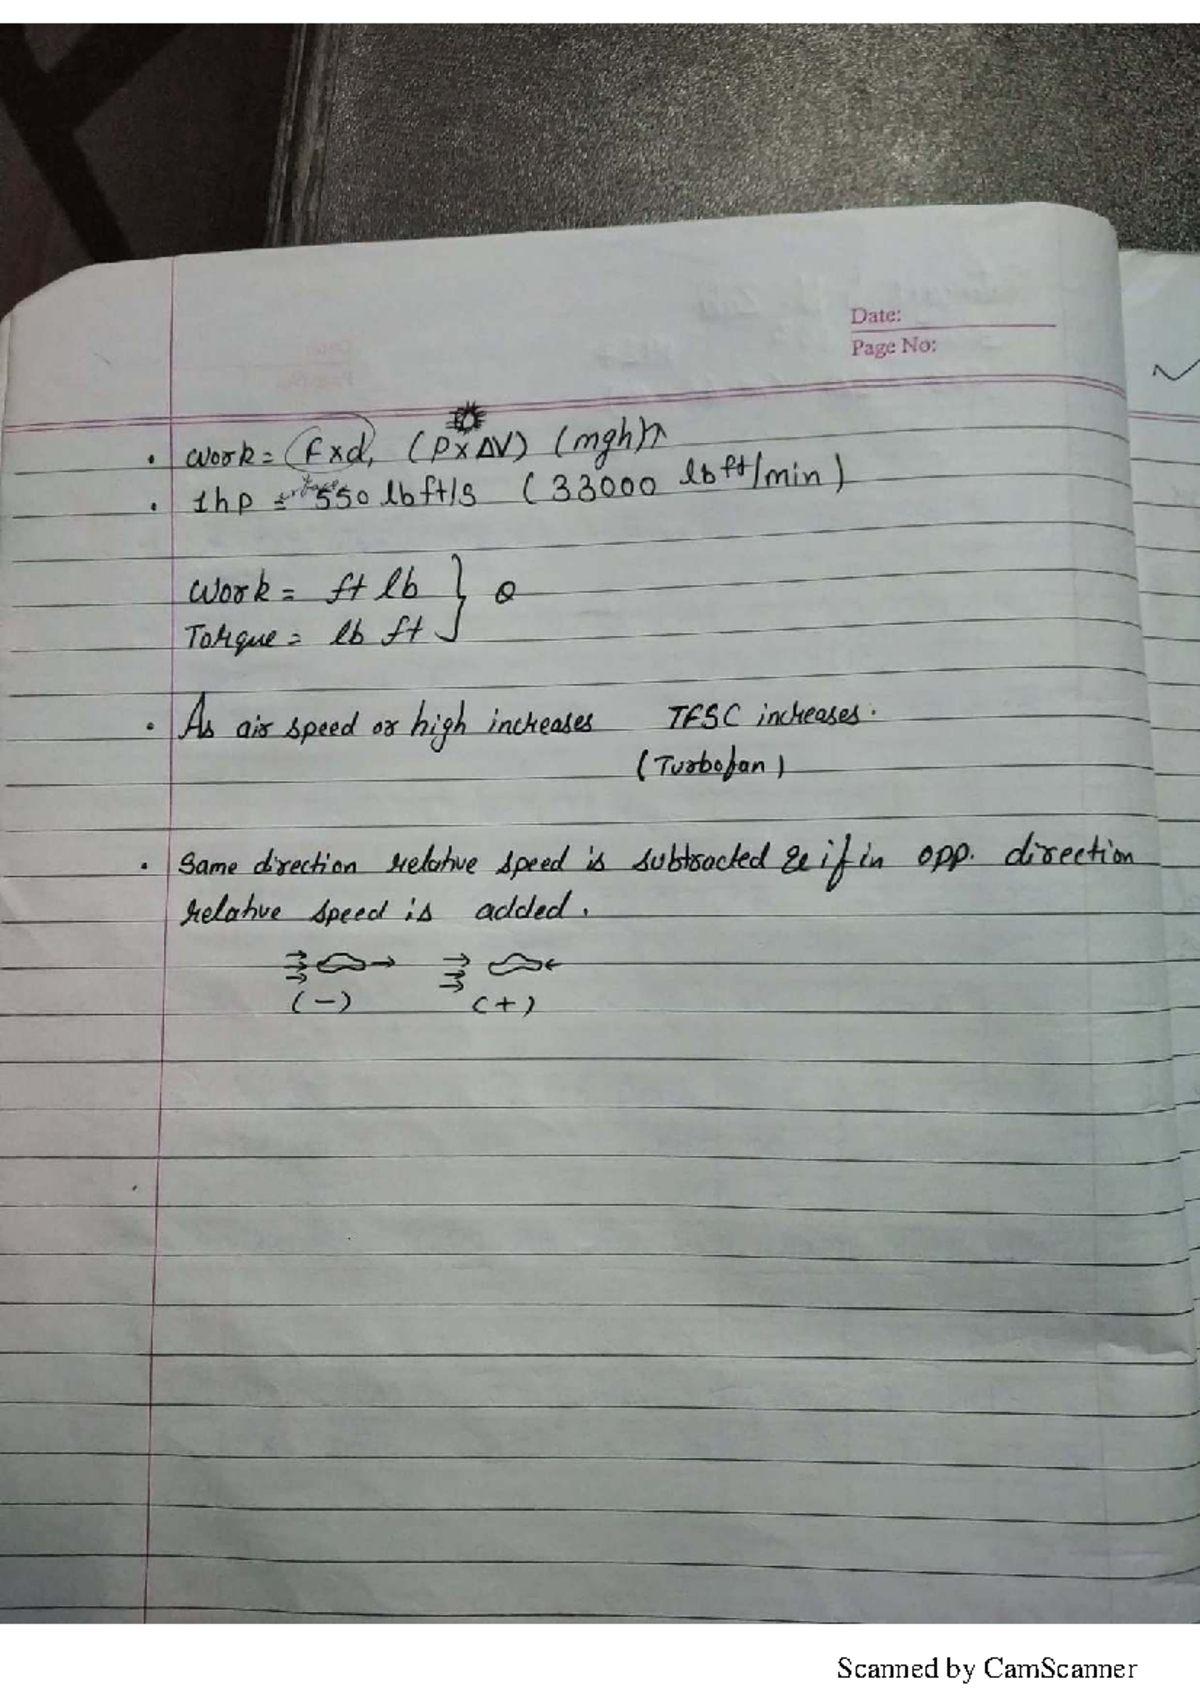 Date:
Page No:
• Work = (F×d), (P×ΔV) (mgh)
• 1hp = 550 lbft/s (33000 lbft/min)
Work = ft lb
Torque = lb ft
• As air speed or high increases TFSC increases.
(Turbofan)
• Same direction relative speed is subtracted & if in opp. direction
relative speed is added.
(-) (+)
Scanned by CamScanner